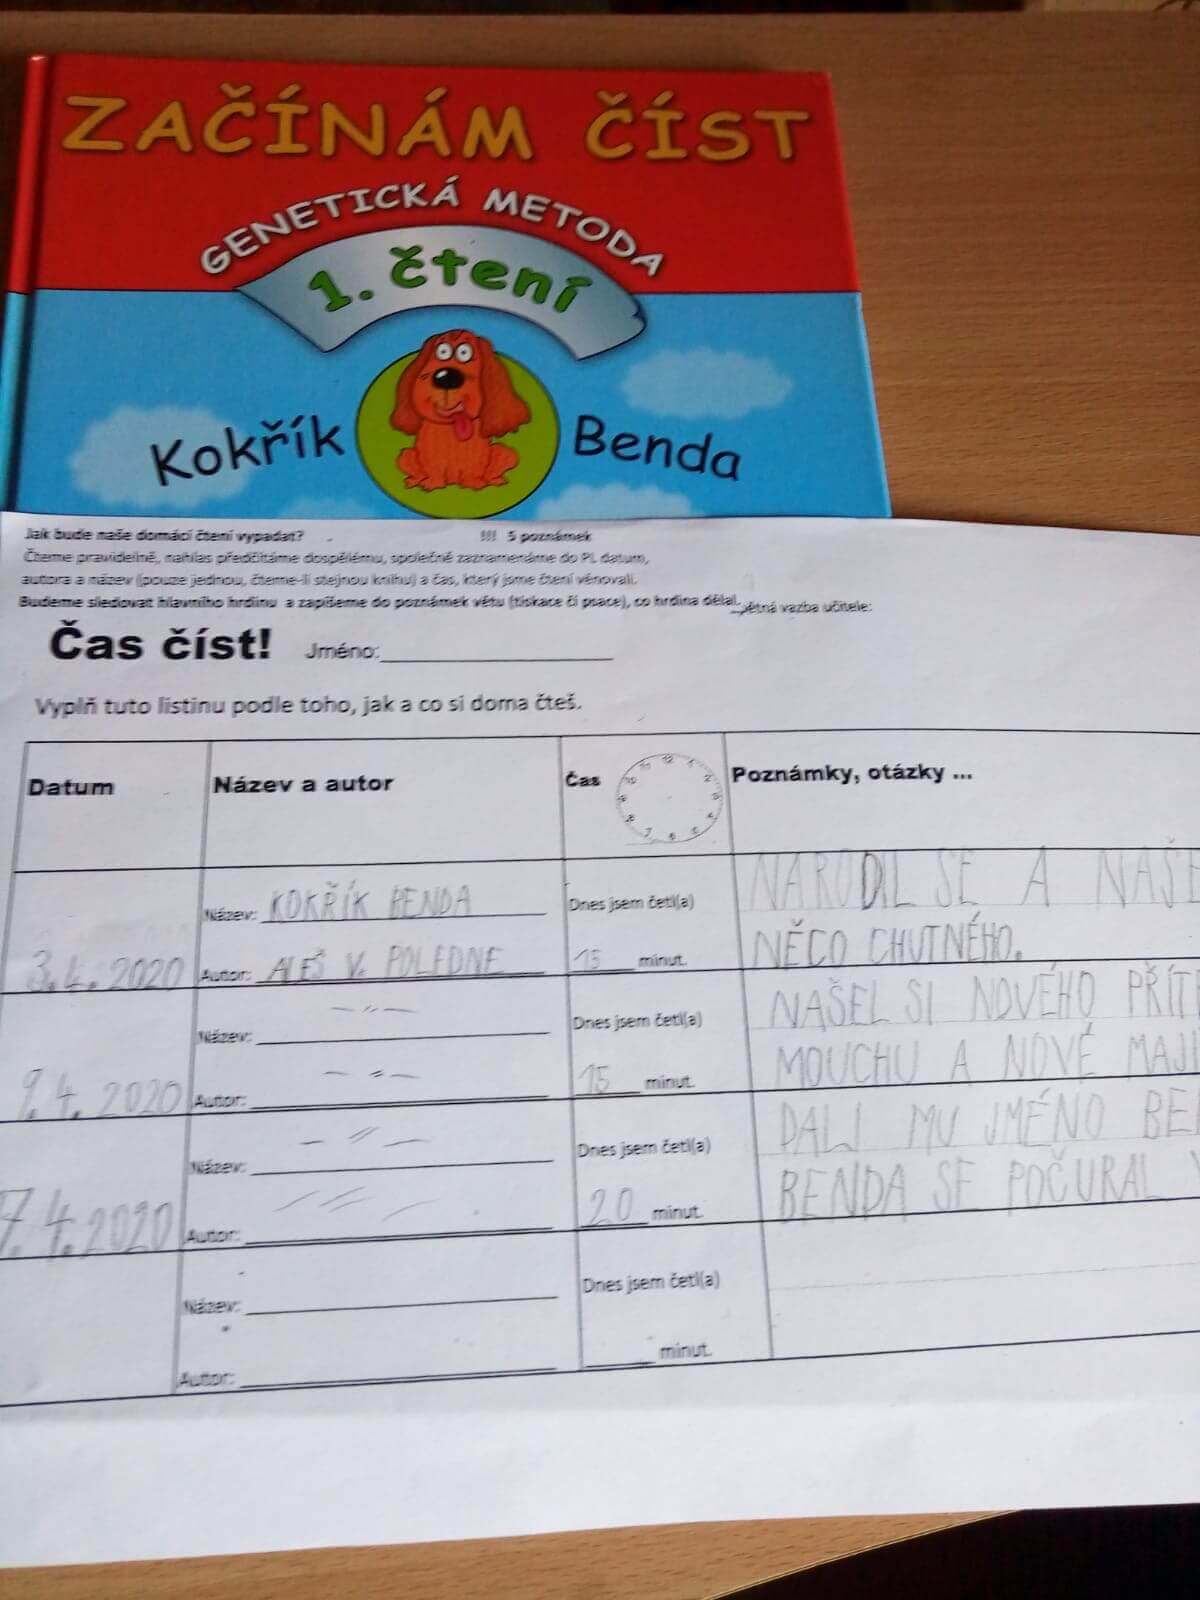 ZAČÍNÁM ČÍST
GENETICKÁ METODA
1. čtení
Kokřík Benda
Jak bude naše domácí čtení vypadat? !!! 5 poznámek
Čteme pravidelně, nahlas předčítáme dospělému, společně zaznamenáme do PL datum,
autora a název (pouze jednou, čteme-li stejnou knihu) a čas, který jsme čtení věnovali.
Budeme sledovat hlavního hrdinu a zapíšeme do poznámek větu (tiskace či psace), co hrdina dělal.
vazba učitele:
Čas číst! Jméno:
Vyplň tuto listinu podle toho, jak a co si doma čteš.
Datum Název a autor Čas Poznámky, otázky ...
3.4. 2020
Název: KOKŘÍK BENDA
Autor: ALEŠ V. POLEDNE
Dnes jsem četl(a)
15 minut.
NARODIL SE A NAŠE
NĚCO CHUTNÉHO.
9.4. 2020
Název: -"-
Autor: -"-
Dnes jsem četl(a)
15 minut.
NAŠEL SI NOVÉHO PŘÍT
MOUCHU A NOVÉ MAJI
7.4.2020
Název: -"-
Autor: -"-
Dnes jsem četl(a)
20 minut.
DALI MU JMÉNO BE
BENDA SE POČURAL V
Název:
Autor:
Dnes jsem četl(a)
minut.